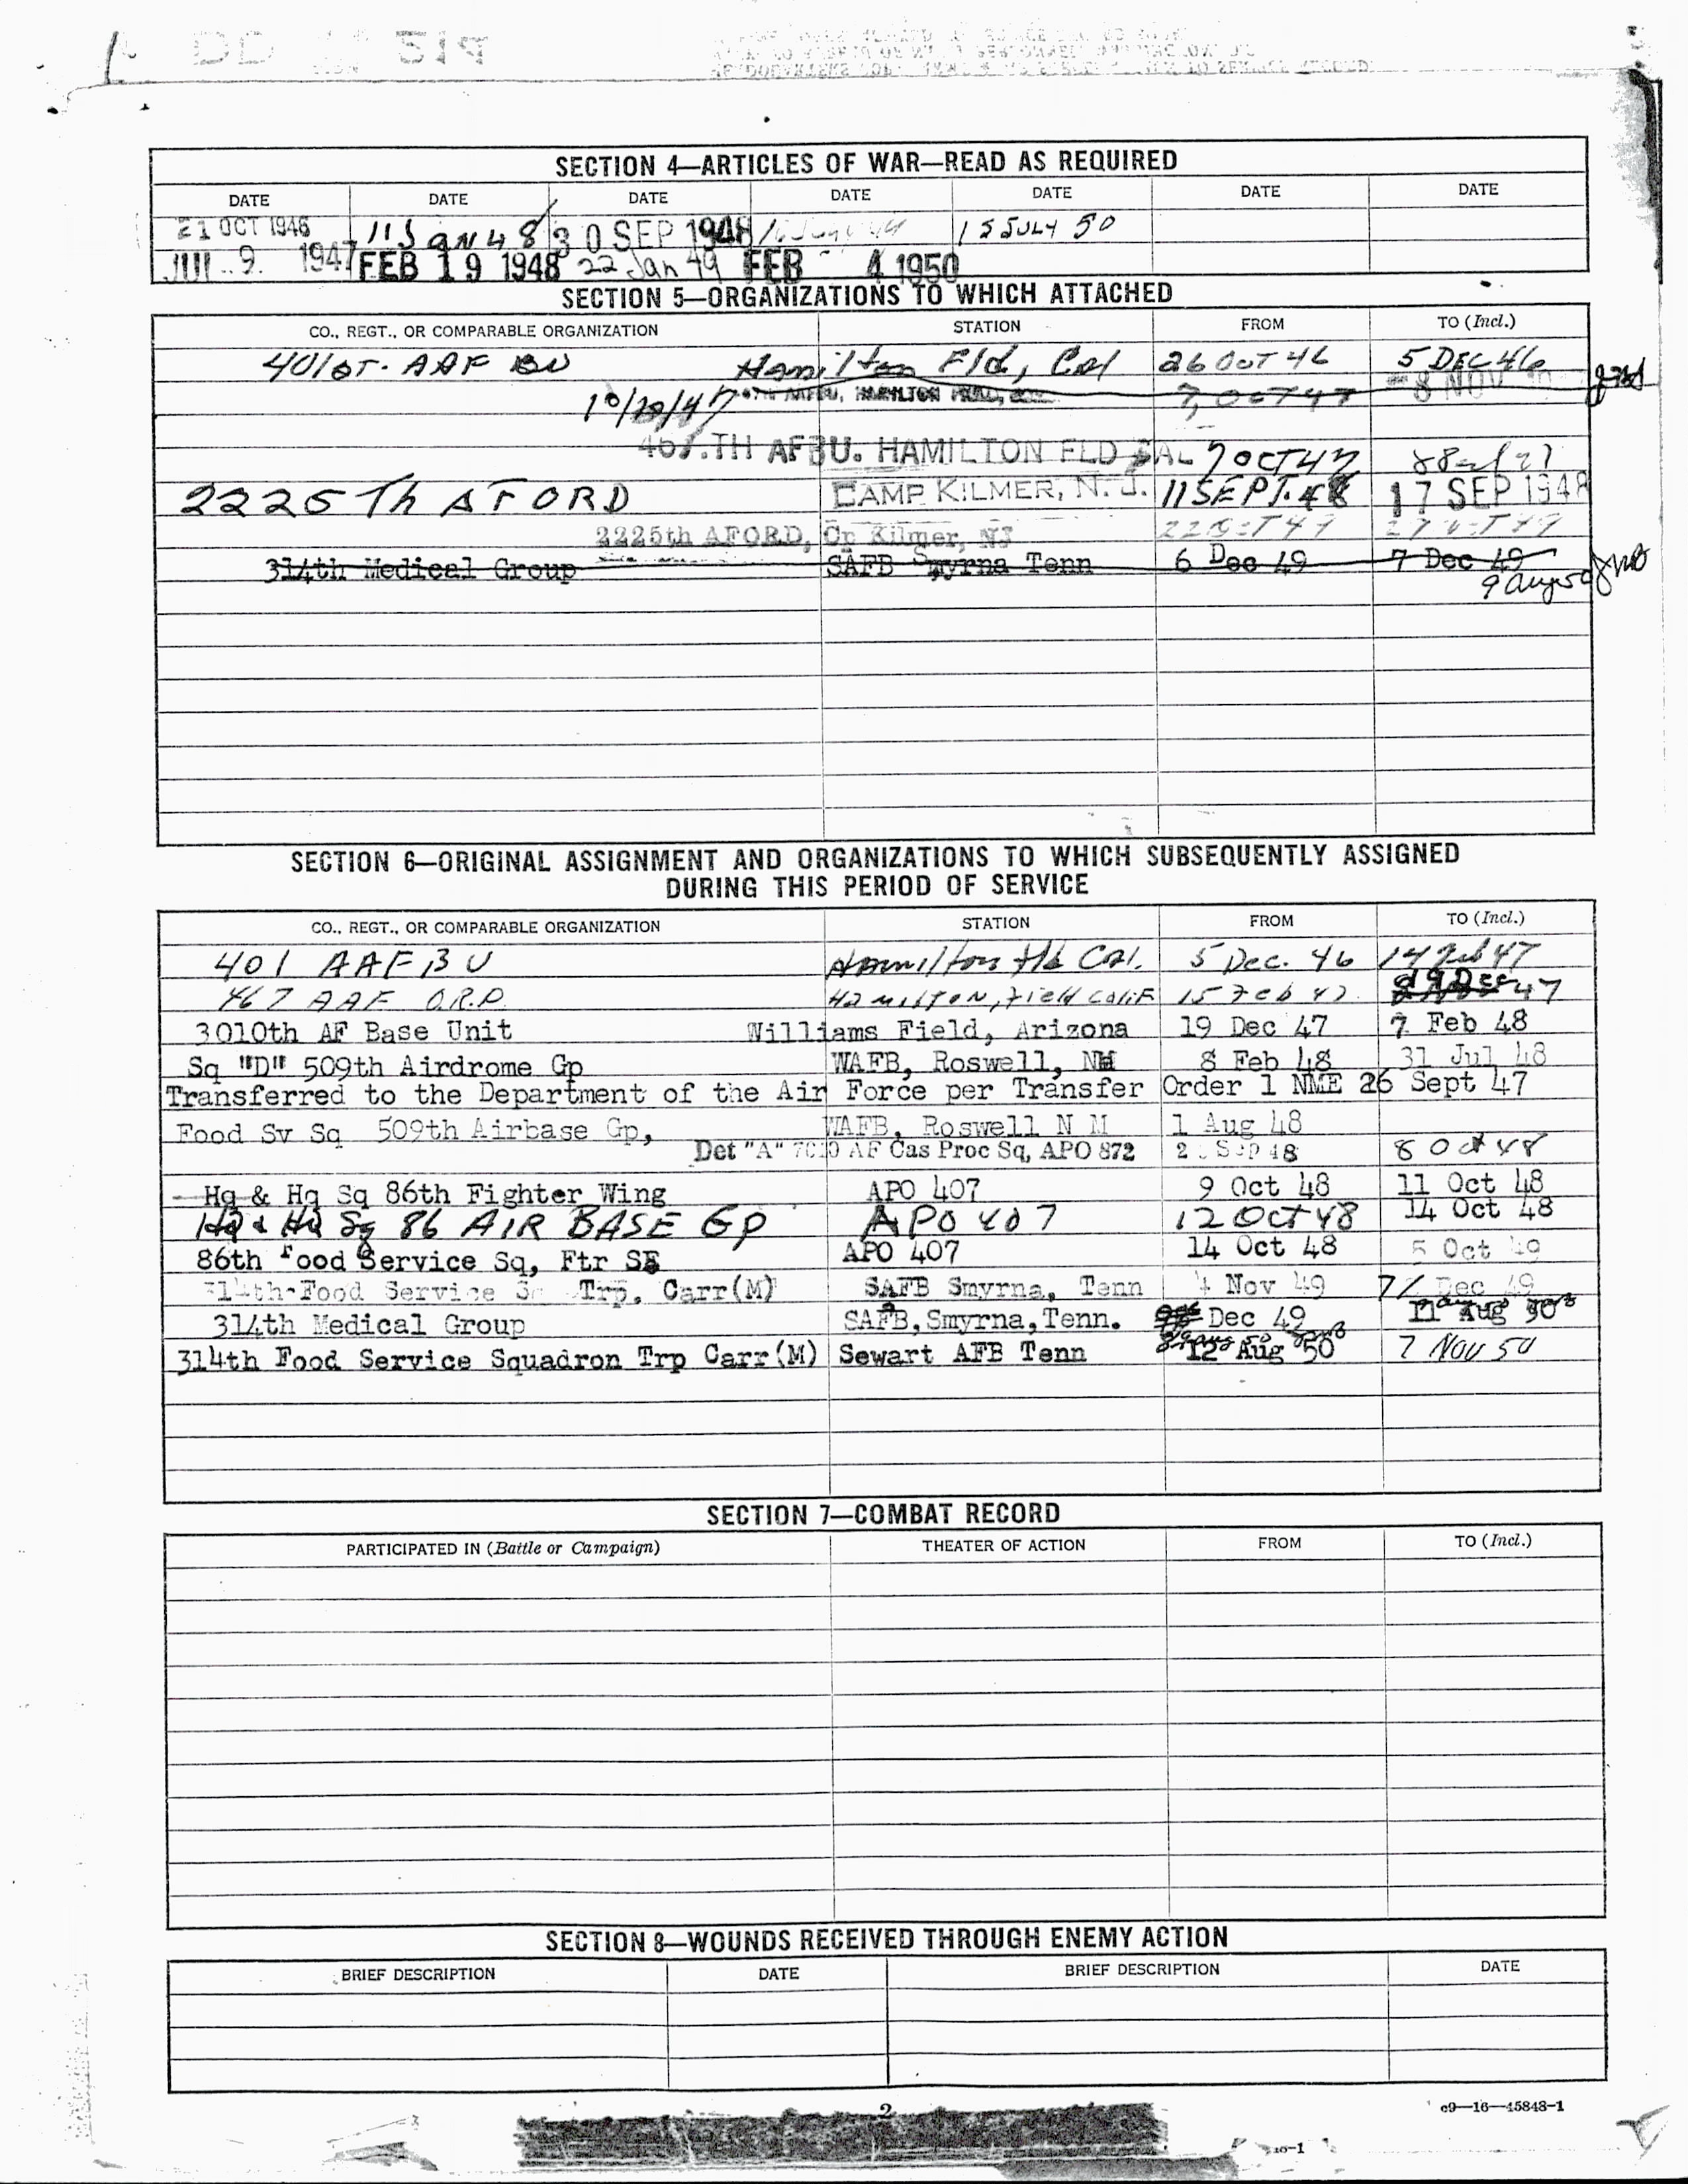 DD 214
SECTION 4—ARTICLES OF WAR—READ AS REQUIRED
DATE DATE DATE DATE DATE DATE DATE
21 OCT 1946 11 Jan 48 30 SEP 1948 15 JULY 50
JUL 9 1947 FEB 19 1948 22 Jan 49 FEB 4 1950
SECTION 5—ORGANIZATIONS TO WHICH ATTACHED
CO., REGT., OR COMPARABLE ORGANIZATION STATION FROM TO (Incl.)
401ST. AAF BU Hamilton Fld, Cal 26 Oct 46 5 DEC 46
10/20/47 AAFBU, HAMILTON FIELD, 7, OCT 47 8 NOV
467.TH AFBU. HAMILTON FLD CAL 7 OCT 47
2225 Th AFORD CAMP KILMER, N. J. 11 SEPT. 48 17 SEP 1948
2225th AFORD, Cp Kilmer, NJ 22 OCT 49 27 OCT 49
314th Medical Group SAFB Smyrna Tenn 6 Dec 49 7 Dec 49
9 Aug 50
SECTION 6—ORIGINAL ASSIGNMENT AND ORGANIZATIONS TO WHICH SUBSEQUENTLY ASSIGNED
DURING THIS PERIOD OF SERVICE
CO., REGT., OR COMPARABLE ORGANIZATION STATION FROM TO (Incl.)
401 AAF BU Hamilton Fld Cal. 5 Dec. 46 14 Feb 47
467 AAF O.R.P. Hamilton, Field Calif 15 Feb 47 19 Dec 47
3010th AF Base Unit Williams Field, Arizona 19 Dec 47 7 Feb 48
Sq "D" 509th Airdrome Gp WAFB, Roswell, NM 8 Feb 48 31 Jul 48
Transferred to the Department of the Air Force per Transfer Order 1 NME 26 Sept 47
Food Sv Sq 509th Airbase Gp, WAFB, Roswell N M 1 Aug 48
Det "A" 7010 AF Cas Proc Sq, APO 872 Sep 48 8 Oct 48
Hq & Hq Sq 86th Fighter Wing APO 407 9 Oct 48 11 Oct 48
Hq & Hq Sq 86 AIR BASE Gp APO 407 12 Oct 48 14 Oct 48
86th Food Service Sq, Ftr SE APO 407 14 Oct 48 5 Oct 49
314th Food Service Sq Trp, Carr(M) SAFB Smyrna, Tenn 4 Nov 49 7 Dec 49
314th Medical Group SAFB, Smyrna, Tenn. Dec 49 11 Aug 50
314th Food Service Squadron Trp Carr(M) Sewart AFB Tenn 12 Aug 50 7 Nov 50
SECTION 7—COMBAT RECORD
PARTICIPATED IN (Battle or Campaign) THEATER OF ACTION FROM TO (Incl.)
SECTION 8—WOUNDS RECEIVED THROUGH ENEMY ACTION
BRIEF DESCRIPTION DATE BRIEF DESCRIPTION DATE
2
c9—16—45848-1